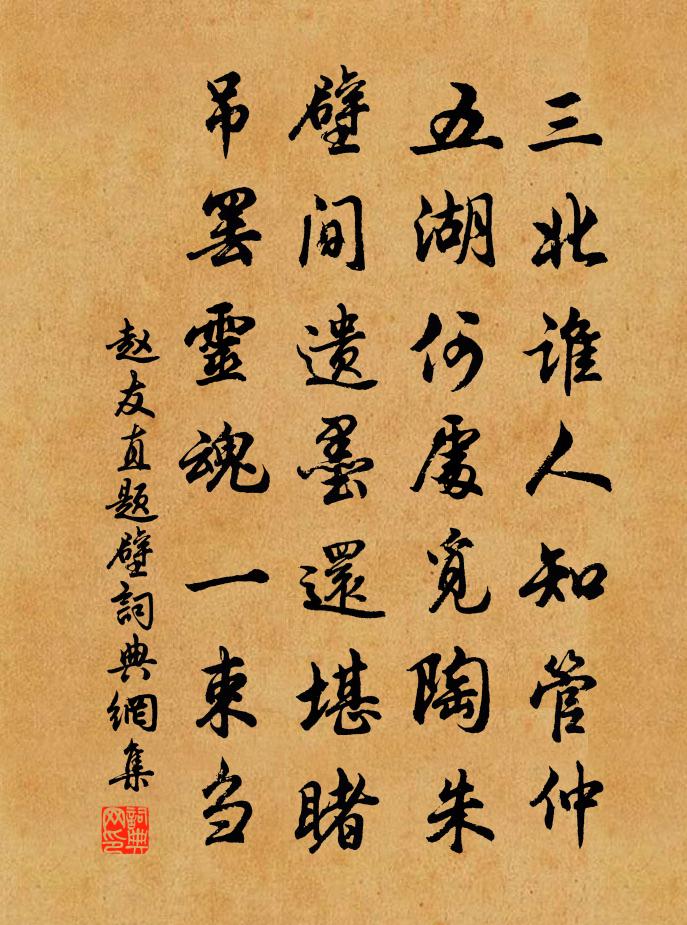 三北谁人知管仲
五湖何處覓陶朱
壁间遗墨還堪睹
吊罢靈魂一束刍
赵友直题壁詞典網集
詞典网印